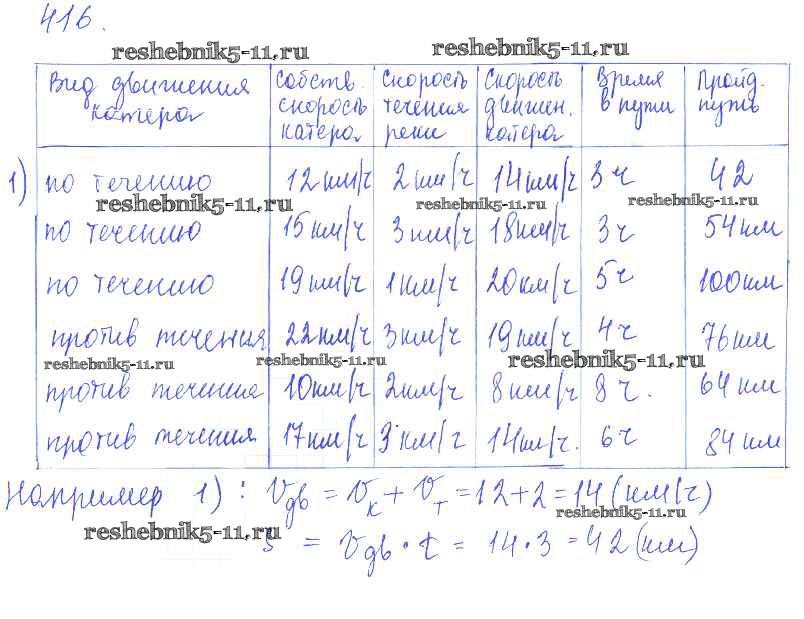 416.
reshebnik5-11.ru reshebnik5-11.ru
Вид движения катера | Собств. скорость катера | Скорость течения реки | Скорость движен. катера | Время в пути | Пройд. путь
1) по течению | 12 км/ч | 2 км/ч | 14 км/ч | 3 ч | 42
reshebnik5-11.ru reshebnik5-11.ru reshebnik5-11.ru
по течению | 15 км/ч | 3 км/ч | 18 км/ч | 3 ч | 54 км
по течению | 19 км/ч | 1 км/ч | 20 км/ч | 5 ч | 100 км
против течения | 22 км/ч | 3 км/ч | 19 км/ч | 4 ч | 76 км
reshebnik5-11.ru reshebnik5-11.ru reshebnik5-11.ru
против течения | 10 км/ч | 2 км/ч | 8 км/ч | 8 ч. | 64 км
против течения | 17 км/ч | 3 км/ч | 14 км/ч. | 6 ч | 84 км
Например 1): Vдв = Vк + Vт = 12 + 2 = 14 (км/ч)
reshebnik5-11.ru reshebnik5-11.ru
S = Vдв · t = 14 · 3 = 42 (км)